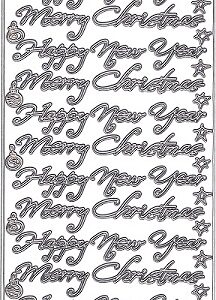 Merry Christmas
Happy New Year
Merry Christmas
Happy New Year
Merry Christmas
Happy New Year
Merry Christmas
Happy New Year
Merry Christmas